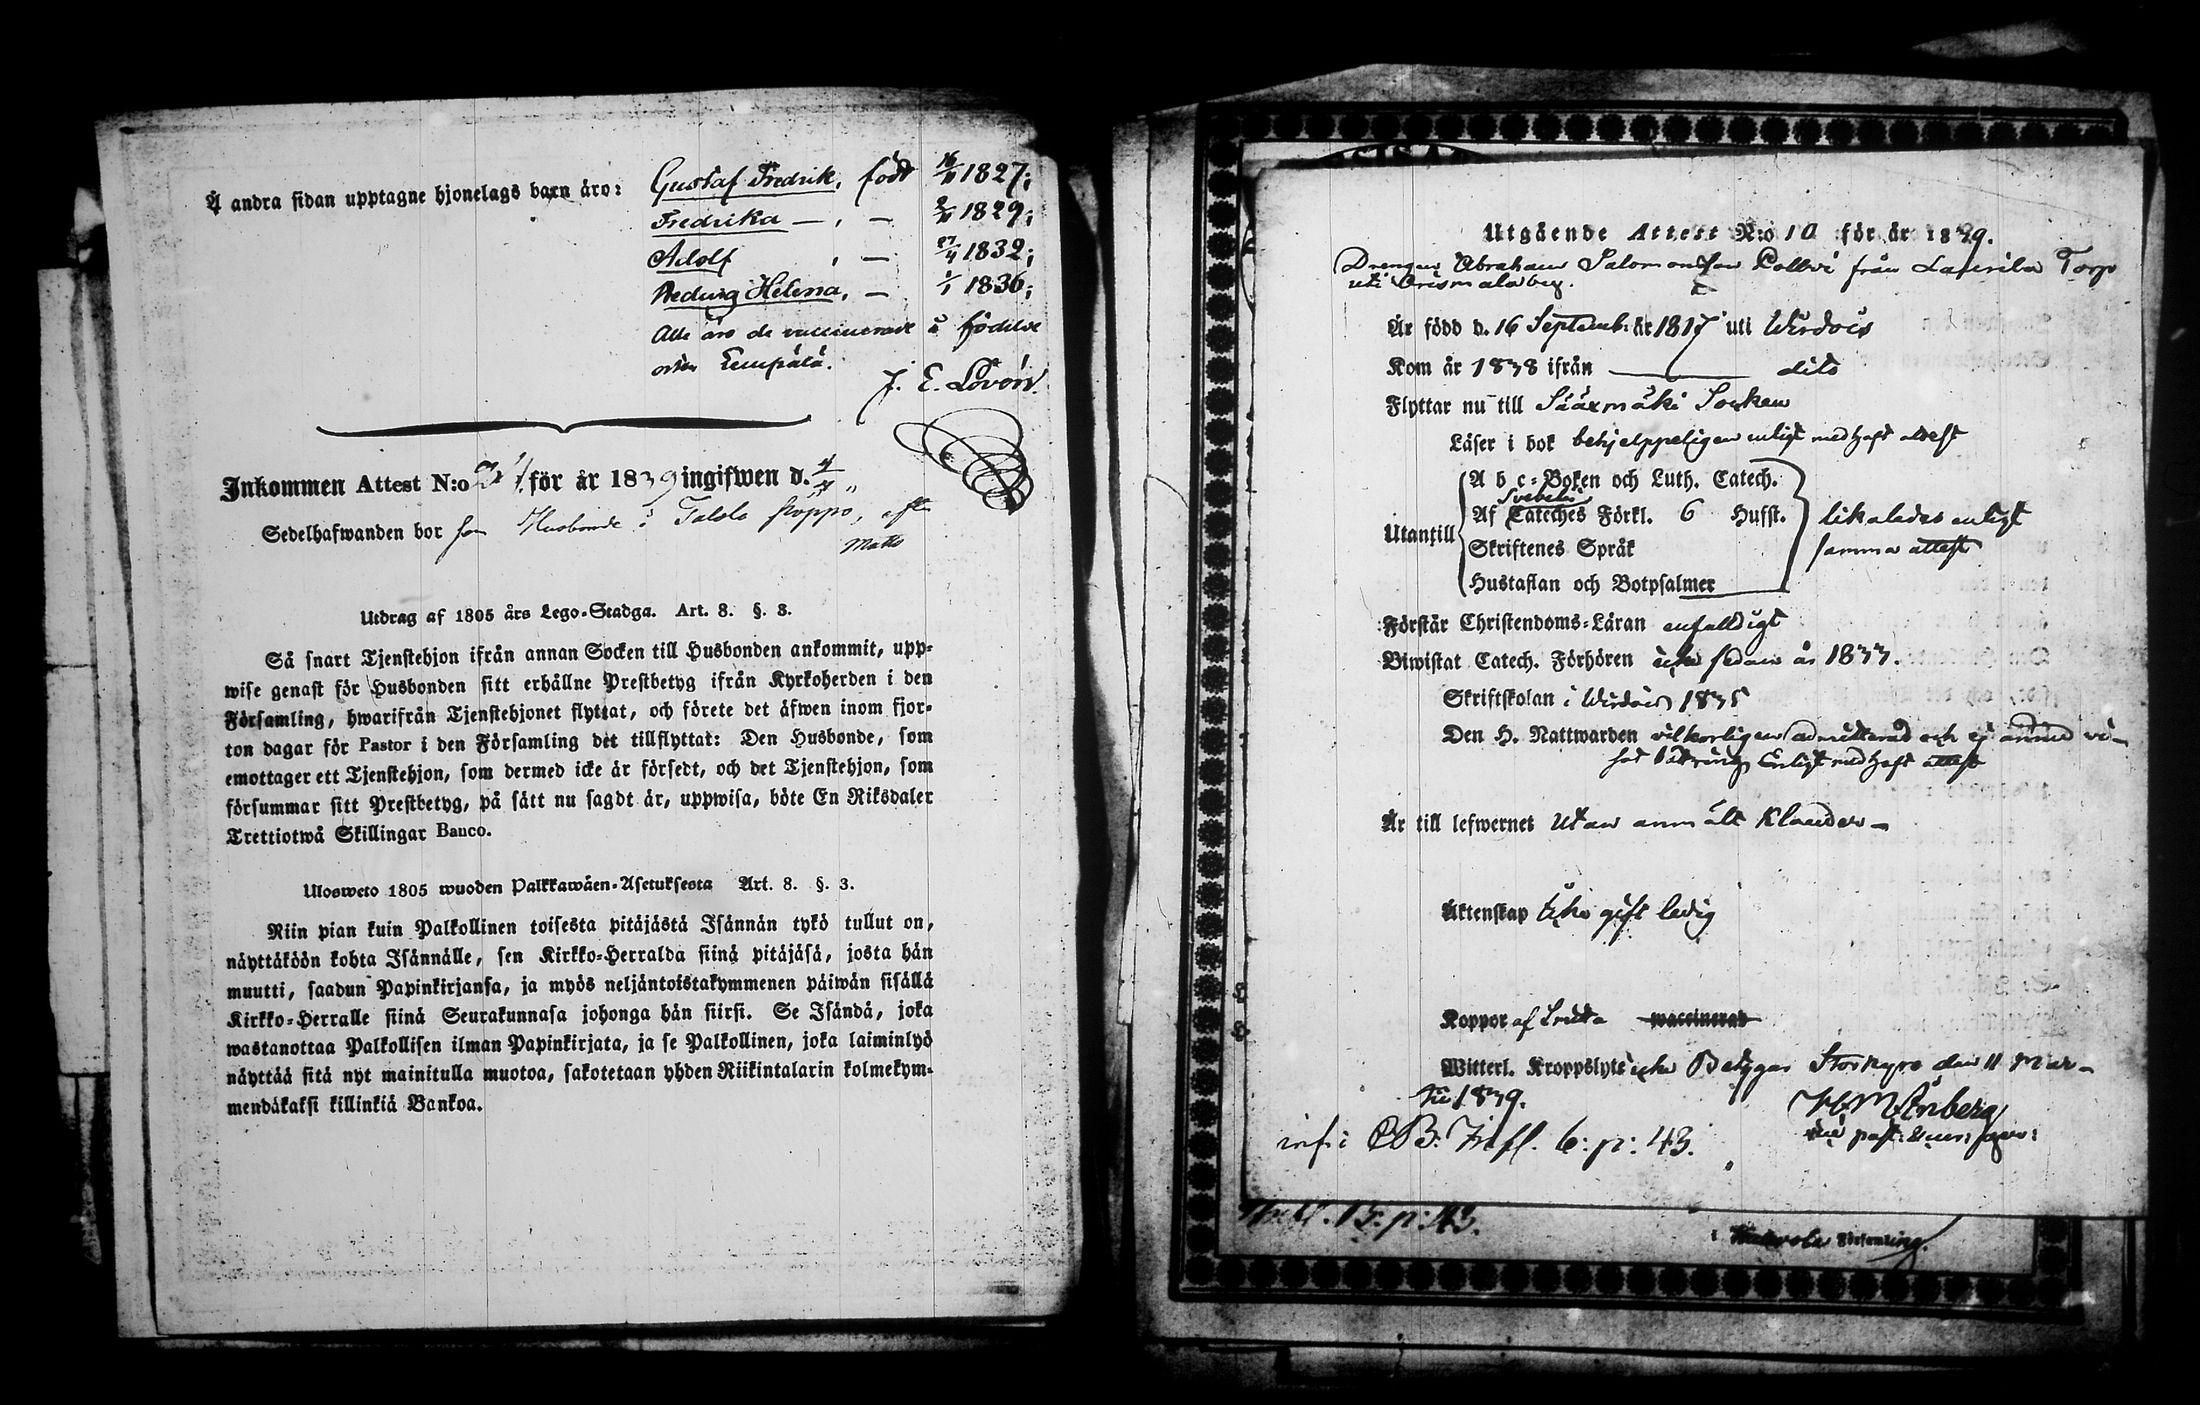 Å andra sidan upptagne hjonelags barn äro: Gustaf Fredrik, född 16/11 1827;
Fredrika — , — 2/11 1829;
Adolf , — 27/4 1832;
Hedwig Helena, — 1/1 1836;
Alla äro de vaccinerade i födelse
orten Lempälä.
J. E. Lovón.
Inkommen Attest N:o för år 1839 ingifwen d. 4/4
Sedelhafwanden bor som Husbonde i
Matts
Utdrag af 1805 års Lego-Stadga. Art. 8. §. 3.
Så snart Tjenstehjon ifrån annan Socken till Husbonden ankommit, upp-
wise genast för Husbonden sitt erhållne Prestbetyg ifrån Kyrkoherden i den
Församling, hwarifrån Tjenstehjonet flyttat, och förete det äfwen inom fjor-
ton dagar för Pastor i den Församling det tillflyttat: Den Husbonde, som
emottager ett Tjenstehjon, som dermed icke är försedt, och det Tjenstehjon, som
försummar sitt Prestbetyg, på sätt nu sagdt är, uppwisa, böte En Riksdaler
Trettiotwå Skillingar Banco.
Ulosweto 1805 wuoden Palkkawäen-Asetuksesta Art. 8. §. 3.
Niin pian kuin Palkollinen toisesta pitäjästä Isännän tykö tullut on,
näyttäköön kohta Isännälle, sen Kirkko-Herralda siinä pitäjäsä, josta hän
muutti, saadun Papinkirjansa, ja myös neljäntoistakymmenen päiwän sisällä
Kirkko-Herralle siinä Seurakunnasa johonga hän siirsi. Se Isändä, joka
wastanottaa Palkollisen ilman Papinkirjata, ja se Palkollinen, joka laiminlyö
näyttää sitä nyt mainitulla muotoa, sakotetaan yhden Riikintalarin kolmekym-
mendäkaksi killinkiä Bankoa.
Utgående Attest N:o 10 för år 1839.
Drengen Abraham Salomonsson från Laurila Torp
uti
Är född d. 16 Septemb: år 1817 uti Wirdois
Kom år 1838 ifrån — dito
Flyttar nu till Sääxmäki Socken
Läser i bok behjelppeligen enligt medhaft attest
A b c-Boken och Luth. Catech.
Svebelii
Af Cateches Förkl. 6 Hufst. likaledes enligt
Utantill
Skriftenes Språk samma attest
Hustaflan och Botpsalmer
Förstår Christendoms-Läran enfaldigt
Biwistat Catech. Förhören icke sedan år 1833.
Skriftskolan i Wirdois 1835
Den H. Nattwarden vilkorligen admitterad och ej
enligt medhaft attest
Är till lefwernet utan anmält klander -
Äktenskap icke gift ledig
Koppor af waccinerad
Witterl. Kroppslyte icke Betygar Storkyro den 11 Mar-
tii 1839.
inf. i C B: Infl. 6: p: 43.
Infl. 15: p: 43.
i Församling.